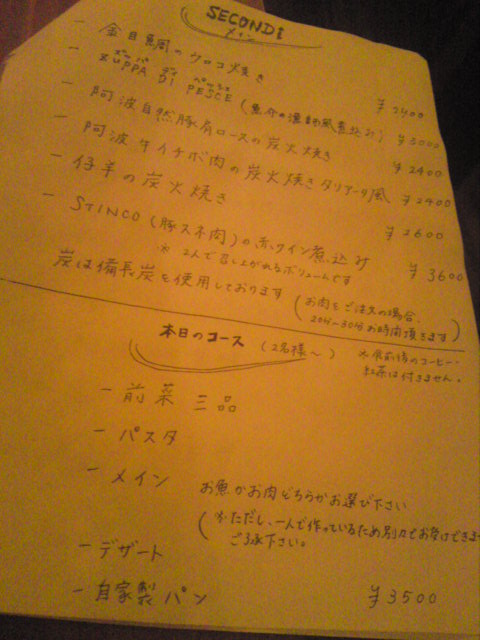 SECONDI
メイン
- 金目鯛のウロコ焼き ¥2400
ズッパ ディ ペッシェ
- ZUPPA DI PESCE (魚介の漁師風煮込み) ¥3000
- 阿波自然豚肩ロースの炭火焼き ¥2400
- 阿波牛イチボ肉の炭火焼きタリアータ風 ¥2400
- 仔羊の炭火焼き ¥2600
- STINCO (豚スネ肉)の赤ワイン煮込み ¥3600
※ 2人で召し上がれるボリュームです
炭は備長炭を使用しております (お肉をご注文の場合、
20分~30分お時間頂きます)
本日のコース (2名様~) ※食前後のコーヒー・
紅茶は付きません。
- 前菜三品
- パスタ
- メイン お魚かお肉どちらかお選び下さい
(※ただし、一人で作っているため別々でお受けできま
ご了承下さい。
- デザート
- 自家製パン ¥3500